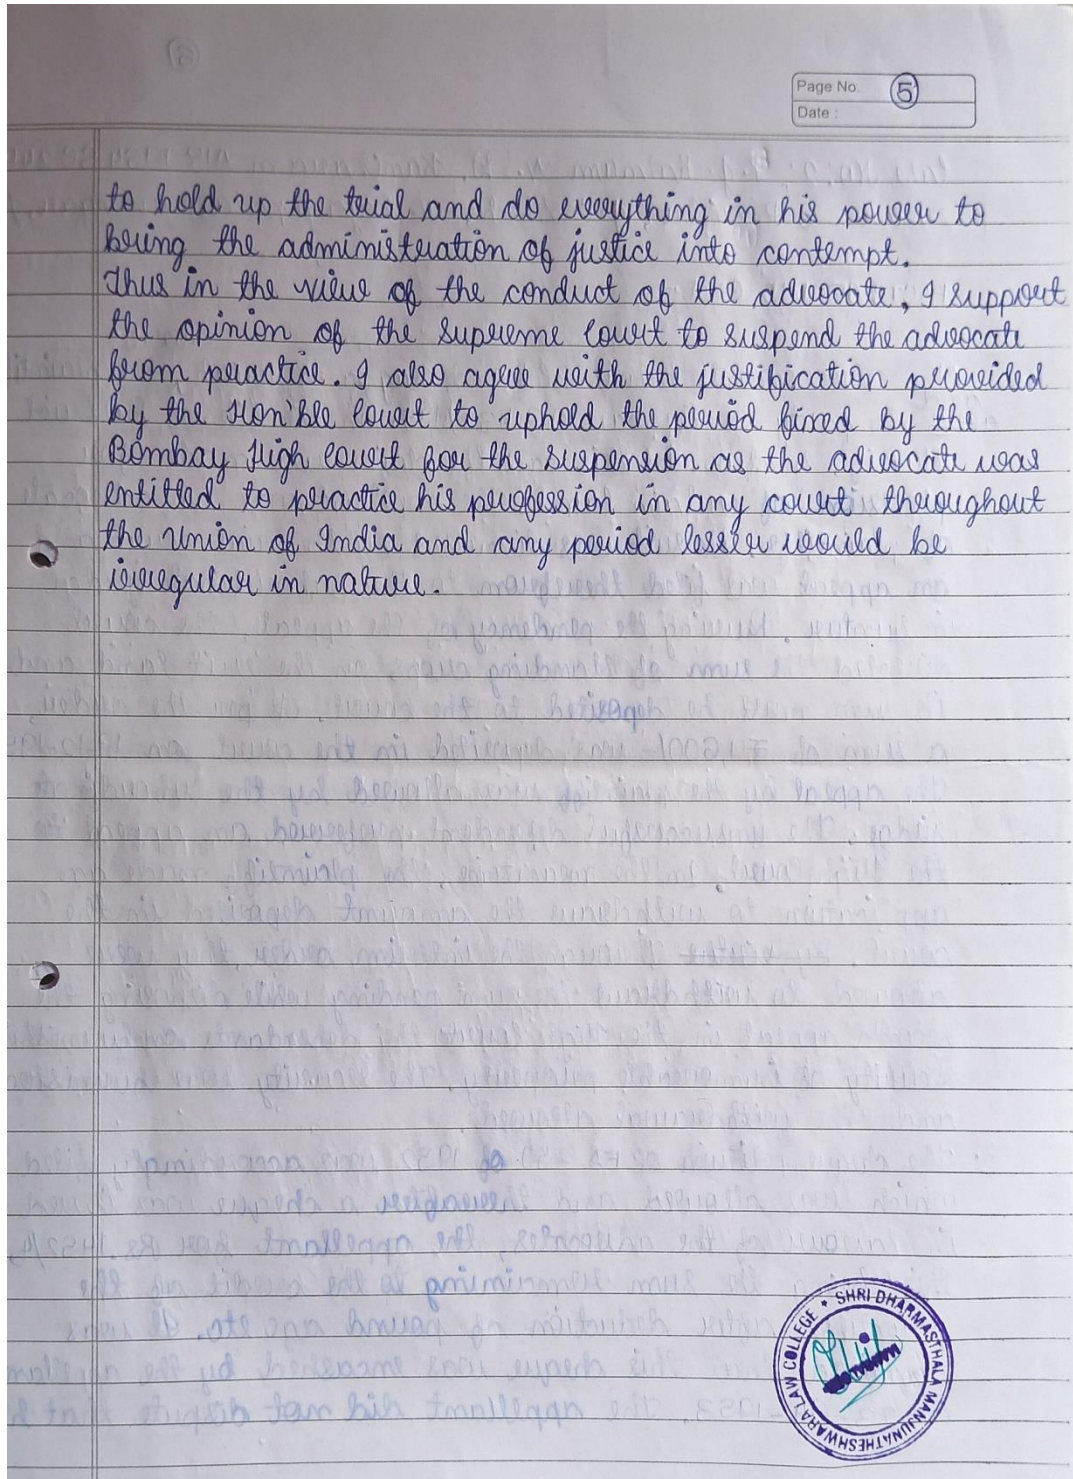 Page No. 5
Date :
to hold up the trial and do everything in his power to
bring the administration of justice into contempt.
Thus in the view of the conduct of the advocate, I support
the opinion of the supreme court to suspend the advocate
from practice. I also agree with the justification provided
by the Hon'ble court to uphold the period fixed by the
Bombay High court for the suspension as the advocate was
entitled to practice his profession in any court throughout
the Union of India and any period lesser would be
irregular in nature.
SHRI DHARMASTHALA MANJUNATHESHWARA LAW COLLEGE